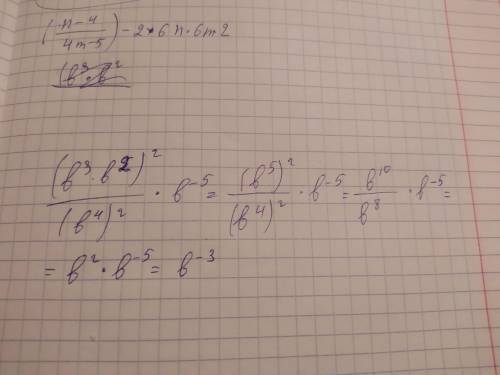 (n-4/4m-5)-2·6n·6m2
(b³·b²
(b³·b²)²/(b⁴)² · b⁻⁵ = (b⁵)²/(b⁴)² · b⁻⁵ = b¹⁰/b⁸ · b⁻⁵ =
= b² · b⁻⁵ = b⁻³